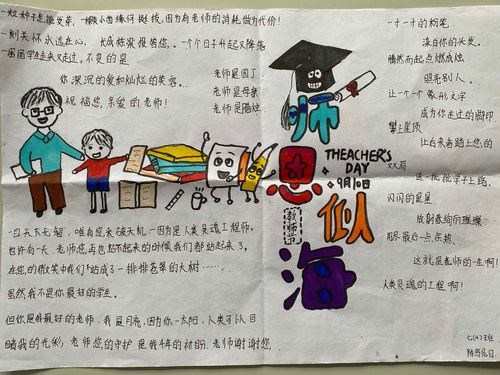 一粒种子能发芽,一棵小苗缘何挺拔,因为有老师的消耗做为代价!
一刻关怀永远在心,长成栋梁报答您。一个个日子升起又降落
一届届学生走来又走过,不变的是
你深沉的爱和灿烂的笑容。
祝福您,亲爱的老师!
老师是园丁
老师是母亲
老师是蜡烛
师恩似海
THEACHER'S
DAY
9月10日
教师节
一寸一寸的粉笔
染白你的头发
腾然而起点燃成烛
照亮别人
让一个个象形文字
成为你走过的脚印
攀上星顶
让后来者踏上您的
双肩
这一批批学子上路
闪闪的星星
放射着绚丽璀璨
用尽最后一点余热
这就是老师的一生啊
人类灵魂的工程啊!
一日天下无智,唯有您来破天机一因为是人类灵魂工程师。
也许有一天,老师您再也站不起来的时候我们都站起来了,
在您的微笑中我们站成了一排排苍翠的大树……
虽然我不是你最好的学生。
但你是我最好的老师,我是月亮,因为你一太阳,人类可以目
睹我的光彩,老师您的守护是我4年的祈盼。老师谢谢您。
七(4)班